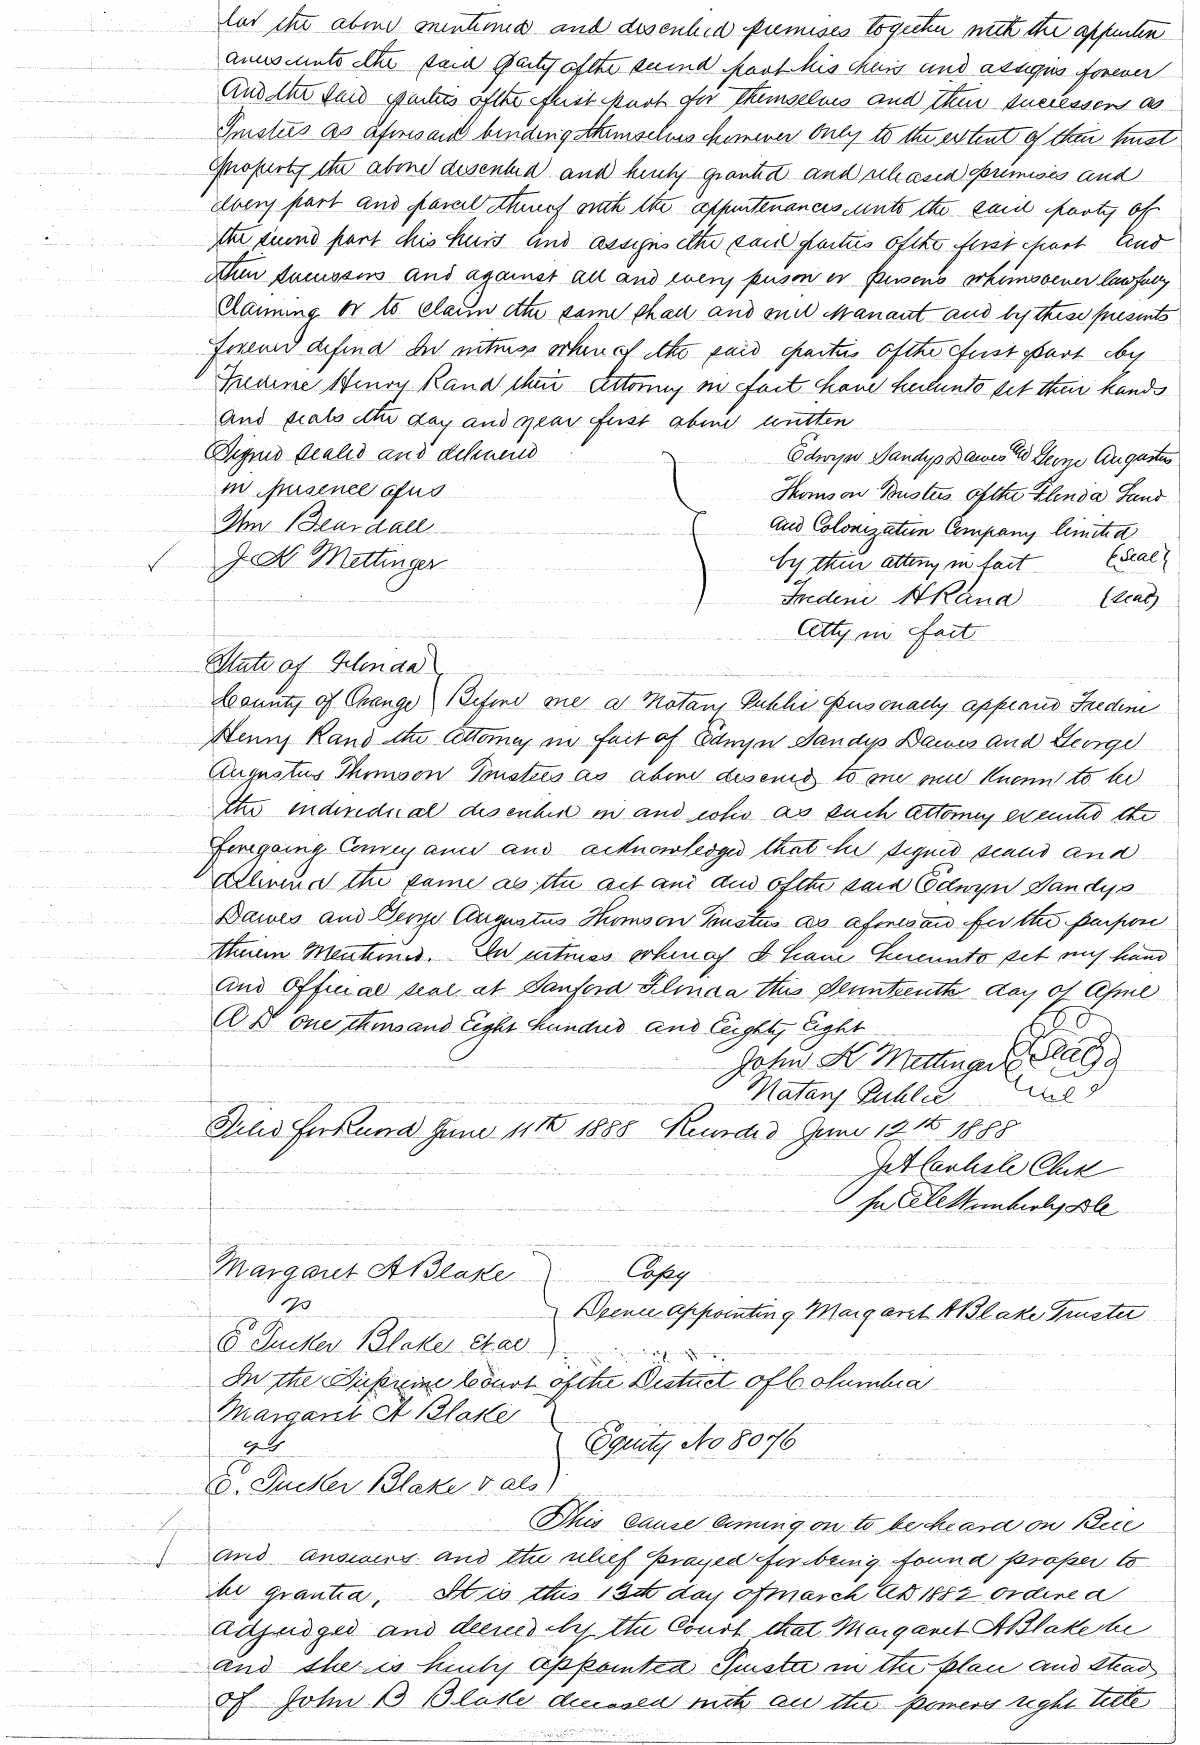 the above mentioned and described premises together with the apperten
ances unto the said party of the second part his heirs and assigns forever
And the said parties of the first part for themselves and their successors as
Trustees as aforesaid binding themselves however only to the extent of their trust
property the above described and hereby granted and released premises and
every part and parcel thereof with the appurtenances unto the said party of
the second part his heirs and assigns the said parties of the first part and
their successors and against all and every person or persons whomsoever lawfully
Claiming or to claim the same shall and will warrant and by these presents
forever defend In witness whereof the said parties of the first part by
Frederic Henry Rand their Attorney in fact have hereunto set their hands
and seals the day and year first above written
Signed sealed and delivered
in presence of us
Wm Beardall
J K Mettinger
Edwyn Sandys Dawes and George Augustus
Thomson Trustees of the Florida Land
and Colonization Company limited
by their attorny in fact (Seal)
Frederic H Rand (seal)
Atty in fact
State of Florida
County of Orange Before me a Notary Public personally appeared Frederic
Henry Rand the Attorney in fact of Edwyn Sandys Dawes and George
Augustus Thomson Trustees as above descried to me well known to be
the individual described in and who as such Attorney executed the
foregoing Conveyance and acknowledged that he signed sealed and
delivered the same as the act and deed of the said Edwyn Sandys
Dawes and George Augustus Thomson Trustees as aforesaid for the purpose
therein Mentioned. In witness whereof I have hereunto set my hand
and Official seal at Sanford Florida this Seventeenth day of April
A D one thousand Eight hundred and Eighty Eight
John K Mettinger (Seal)
Notary Public
Filed for Record June 11th 1888 Recorded June 12th 1888
Carlisle Clerk
Wimberly
Margaret A Blake
vs
E Tucker Blake et al
Copy
Decree appointing Margaret A Blake Trustee
In the Supreme Court of the District of Columbia
Margaret A Blake
vs
E. Tucker Blake & als
Equity No 8076
This cause coming on to be heard on Bill
and answers and the relief prayed for being found proper to
be granted, It is this 13th day of March AD 1882 ordered
adjudged and decreed by the Court that Margaret A Blake be
and she is hereby appointed Trustee in the place and stead
of John B Blake deceased with all the powers right title